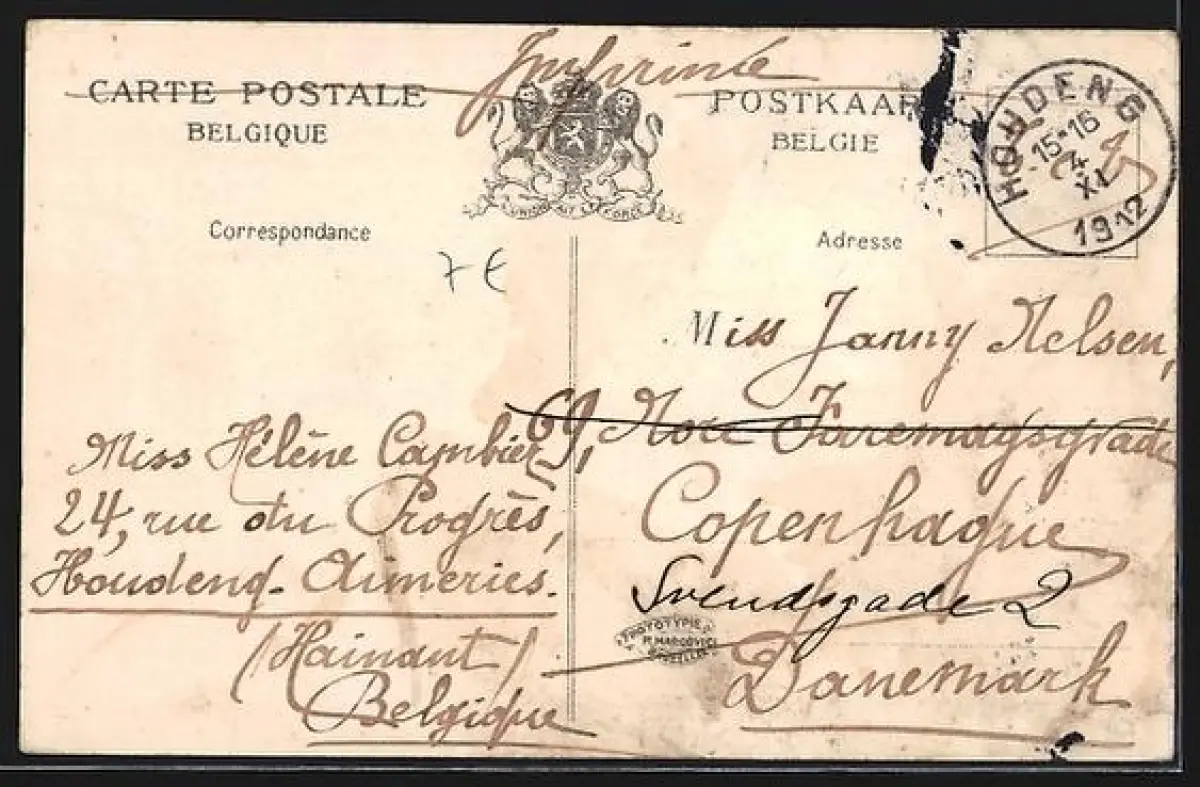 Imprimé
CARTE POSTALE
BELGIQUE
POSTKAAR
BELGIE
L'UNION FAIT LA FORCE
HOUDENG
15-16
4
XI
1912
Correspondance
Adresse
7 €
Miss Janny Nelsen,
69, Nore Faremagsgrade
Copenhague
Svendsgade 2
Danemark
Miss Hélène Cambier
24, rue du Progrès,
Houdeng-Aimeries.
(Hainaut)
Belgique
PHOTOTYPIE
P. MARCOVICI
BRUXELLES